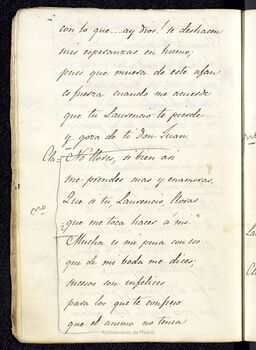 con lo que...ay Dios! se deshacen
mis esperanzas en humo;
pues que muera de este afan
es fuerza cuando me acuerde
que tu Laurencio te pierde
y goza de ti Don Juan.
Cla. No llores, si bien asi
me prendes mas y enamoras.
Que si tu, Laurencio, lloras
que me toca hacer á mi?
no
Mucha es mi pena con eso
que de mi boda me dices;
sucesos son infelices
para los que te confieso
que el animo no tenia
Ayuntamiento de Madrid